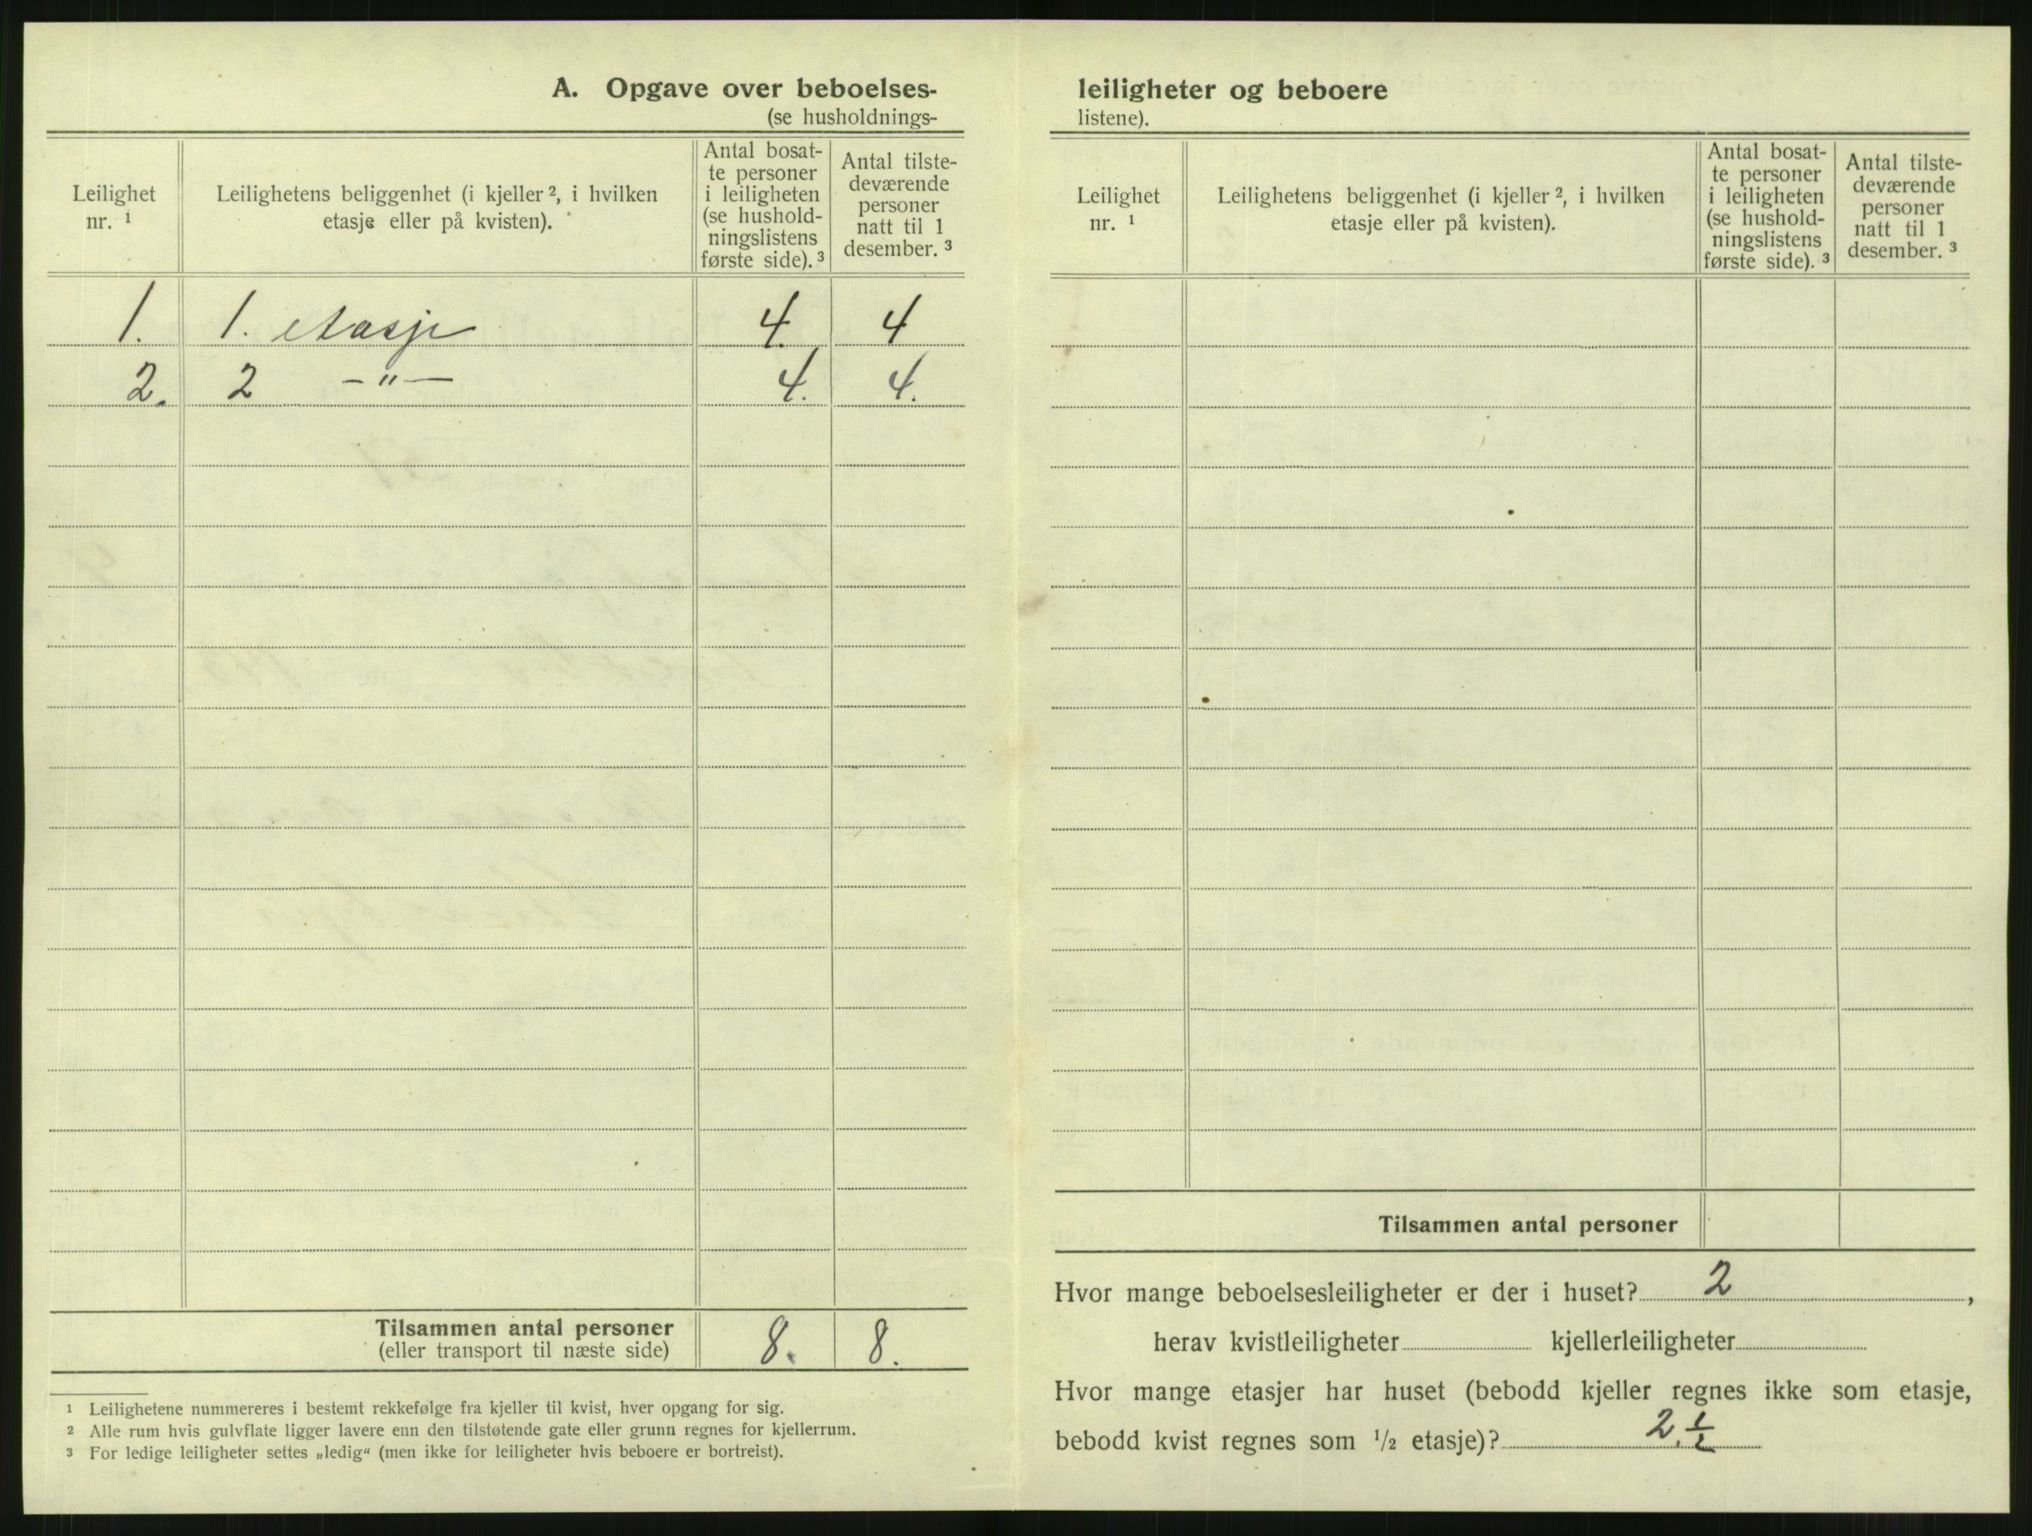 A. Opgave over beboelses-
(se husholdnings-
Leilighet
nr. 1
Leilighetens beliggenhet (i kjeller 2, i hvilken
etasje eller på kvisten).
Antal bosat-
te personer
i leiligheten
(se hushold-
ningslistens
første side). 3
Antal tilste-
deværende
personer
natt til 1
desember. 3
1. 1. etasje 4. 4
2. 2 –"– 4. 4.
Tilsammen antal personer 8. 8.
(eller transport til næste side)
1 Leilighetene nummereres i bestemt rekkefølge fra kjeller til kvist, hver opgang for sig.
2 Alle rum hvis gulvflate ligger lavere enn den tilstøtende gate eller grunn regnes for kjellerrum.
3 For ledige leiligheter settes „ledig“ (men ikke for leiligheter hvis beboere er bortreist).
leiligheter og beboere
listene).
Leilighet
nr. 1
Leilighetens beliggenhet (i kjeller 2, i hvilken
etasje eller på kvisten).
Antal bosat-
te personer
i leiligheten
(se hushold-
ningslistens
første side). 3
Antal tilste-
deværende
personer
natt til 1
desember. 3
Tilsammen antal personer
Hvor mange beboelsesleiligheter er der i huset? 2,
herav kvistleiligheter kjellerleiligheter
Hvor mange etasjer har huset (bebodd kjeller regnes ikke som etasje,
bebodd kvist regnes som 1/2 etasje)? 2. 1/2